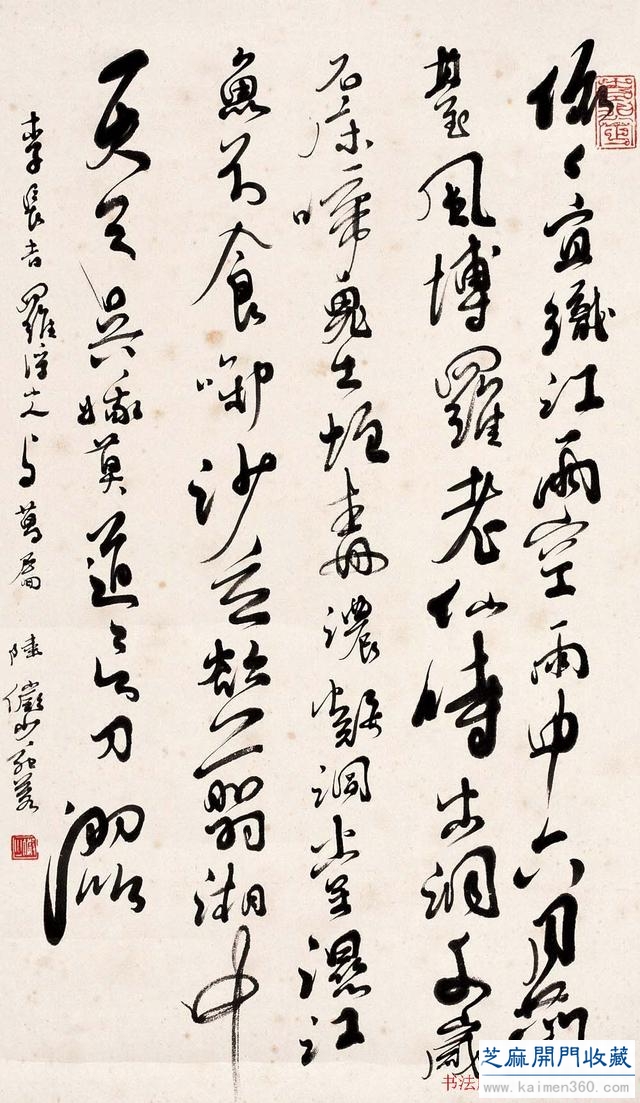 依々宜織江雨空雨中六月蘭
臺風博羅老仙時出洞千歲
石床啼鬼工虵毒濃凝洞堂濕江
魚不食啣沙立欲剪湘中
一尺天吳娥莫道吳刀澀
李長吉羅浮山人与葛篇 陸儼少
书法
芝麻開門收藏
www.kaimen360.com